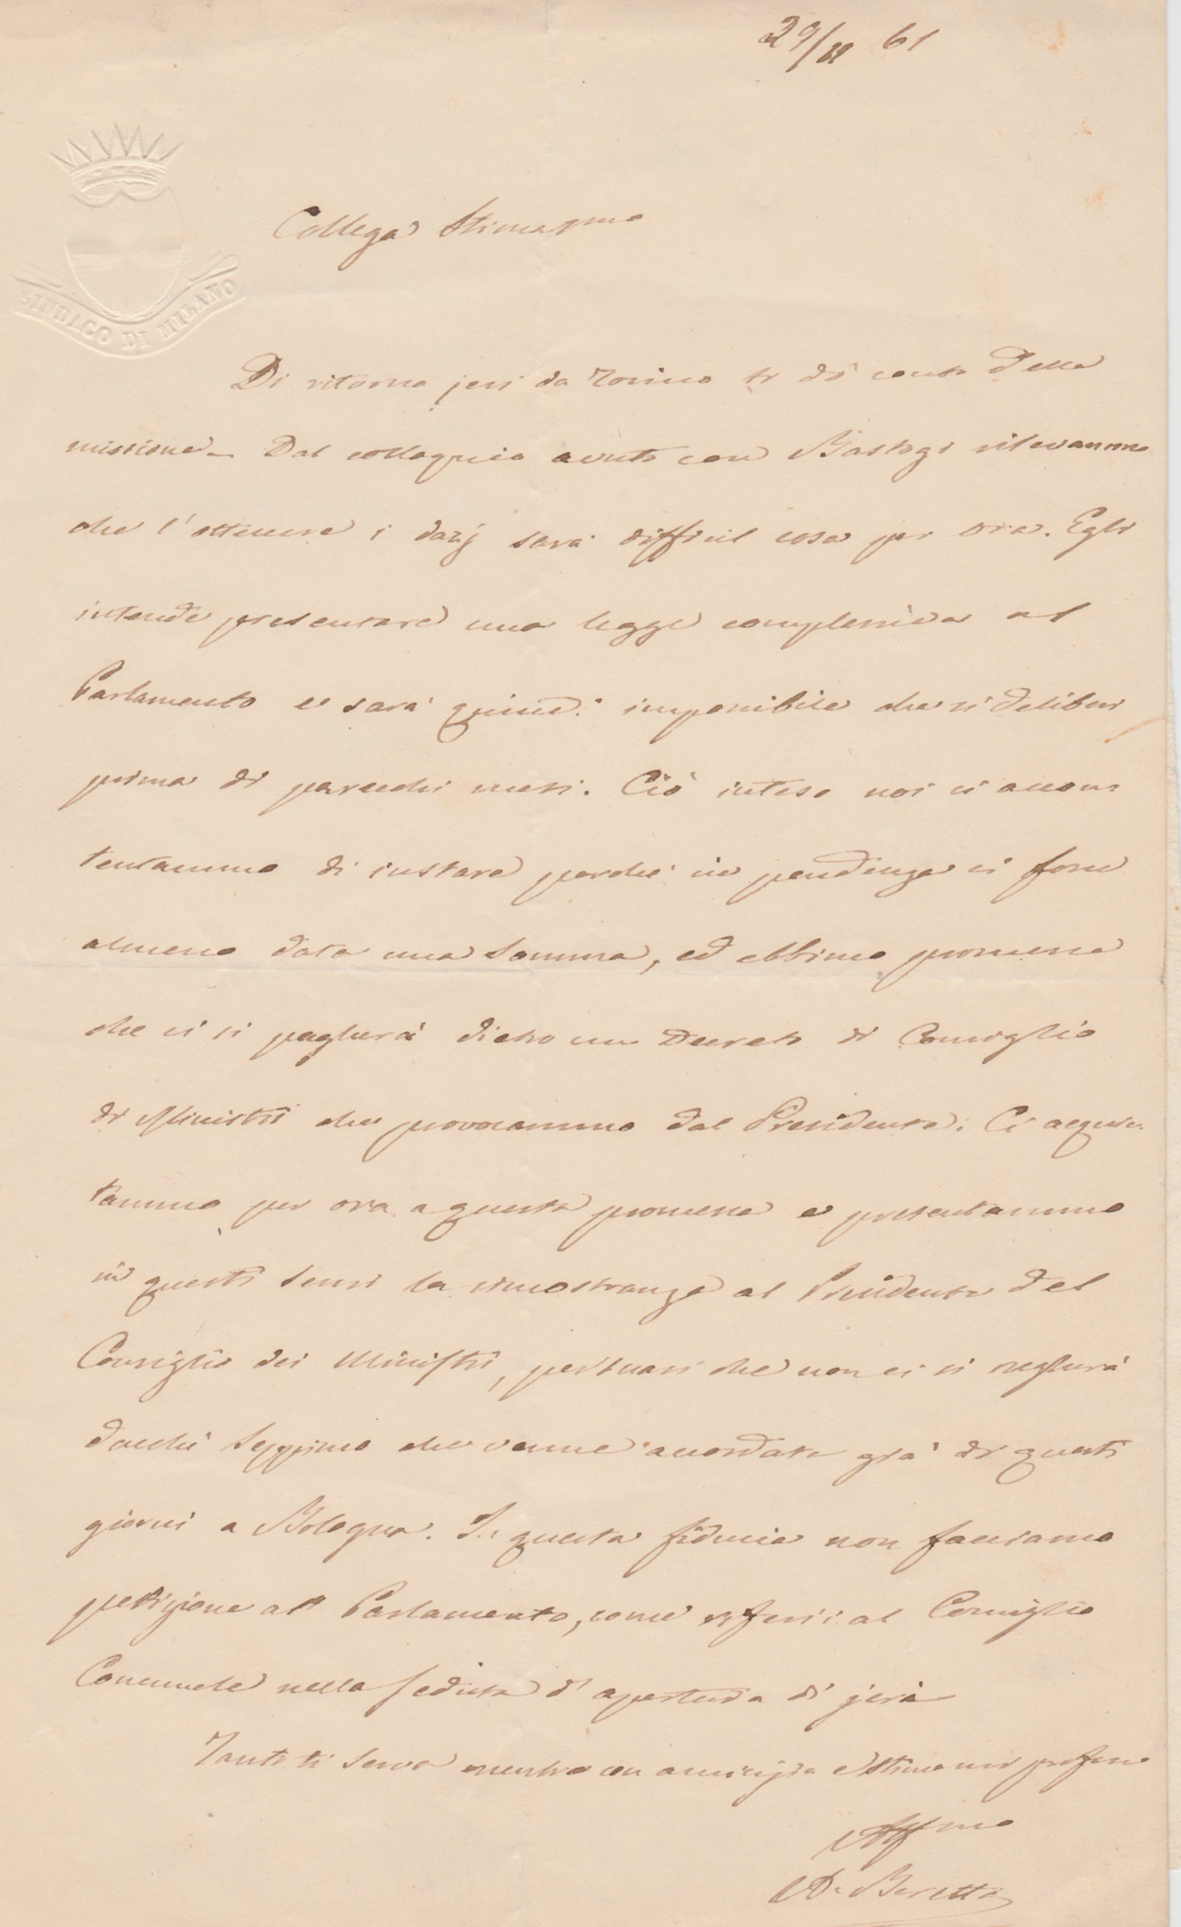 29/11 61
SINDACO DI MILANO
Collega Stimatmo
Di ritorno jeri da Torino ti dò conto della
missione. Dal colloquio avuto con Bastogi rilevammo
che l'ottenere i dazj sarà difficil cosa per ora. Egli
intende presentare una legge complessiva al
Parlamento e sarà quindi impossibile che si deliberi
prima di parecchi mesi. Ciò inteso noi ci accon
tentammo di instare perché in pendenza ci fosse
almeno data una somma, ed ebbimo promessa
che ci si pagherà dietro un Decreto di Consiglio
di Ministri che provocammo dal Presidente. Ci acquie
tammo per ora a questa promessa e presentammo
in questi sensi la rimostranza al Presidente del
Consiglio dei Ministri, persuasi che non ci si negherà
dacché seppimo che venne accordata già di questi
giorni a Bologna. In questa fiducia non facciamo
petizione al Parlamento, come riferii al Consiglio
Comunale nella seduta d'apertura di jeri
Tanto ti serva mentre con amicizia e stima mi professo
Affmo
Beretta